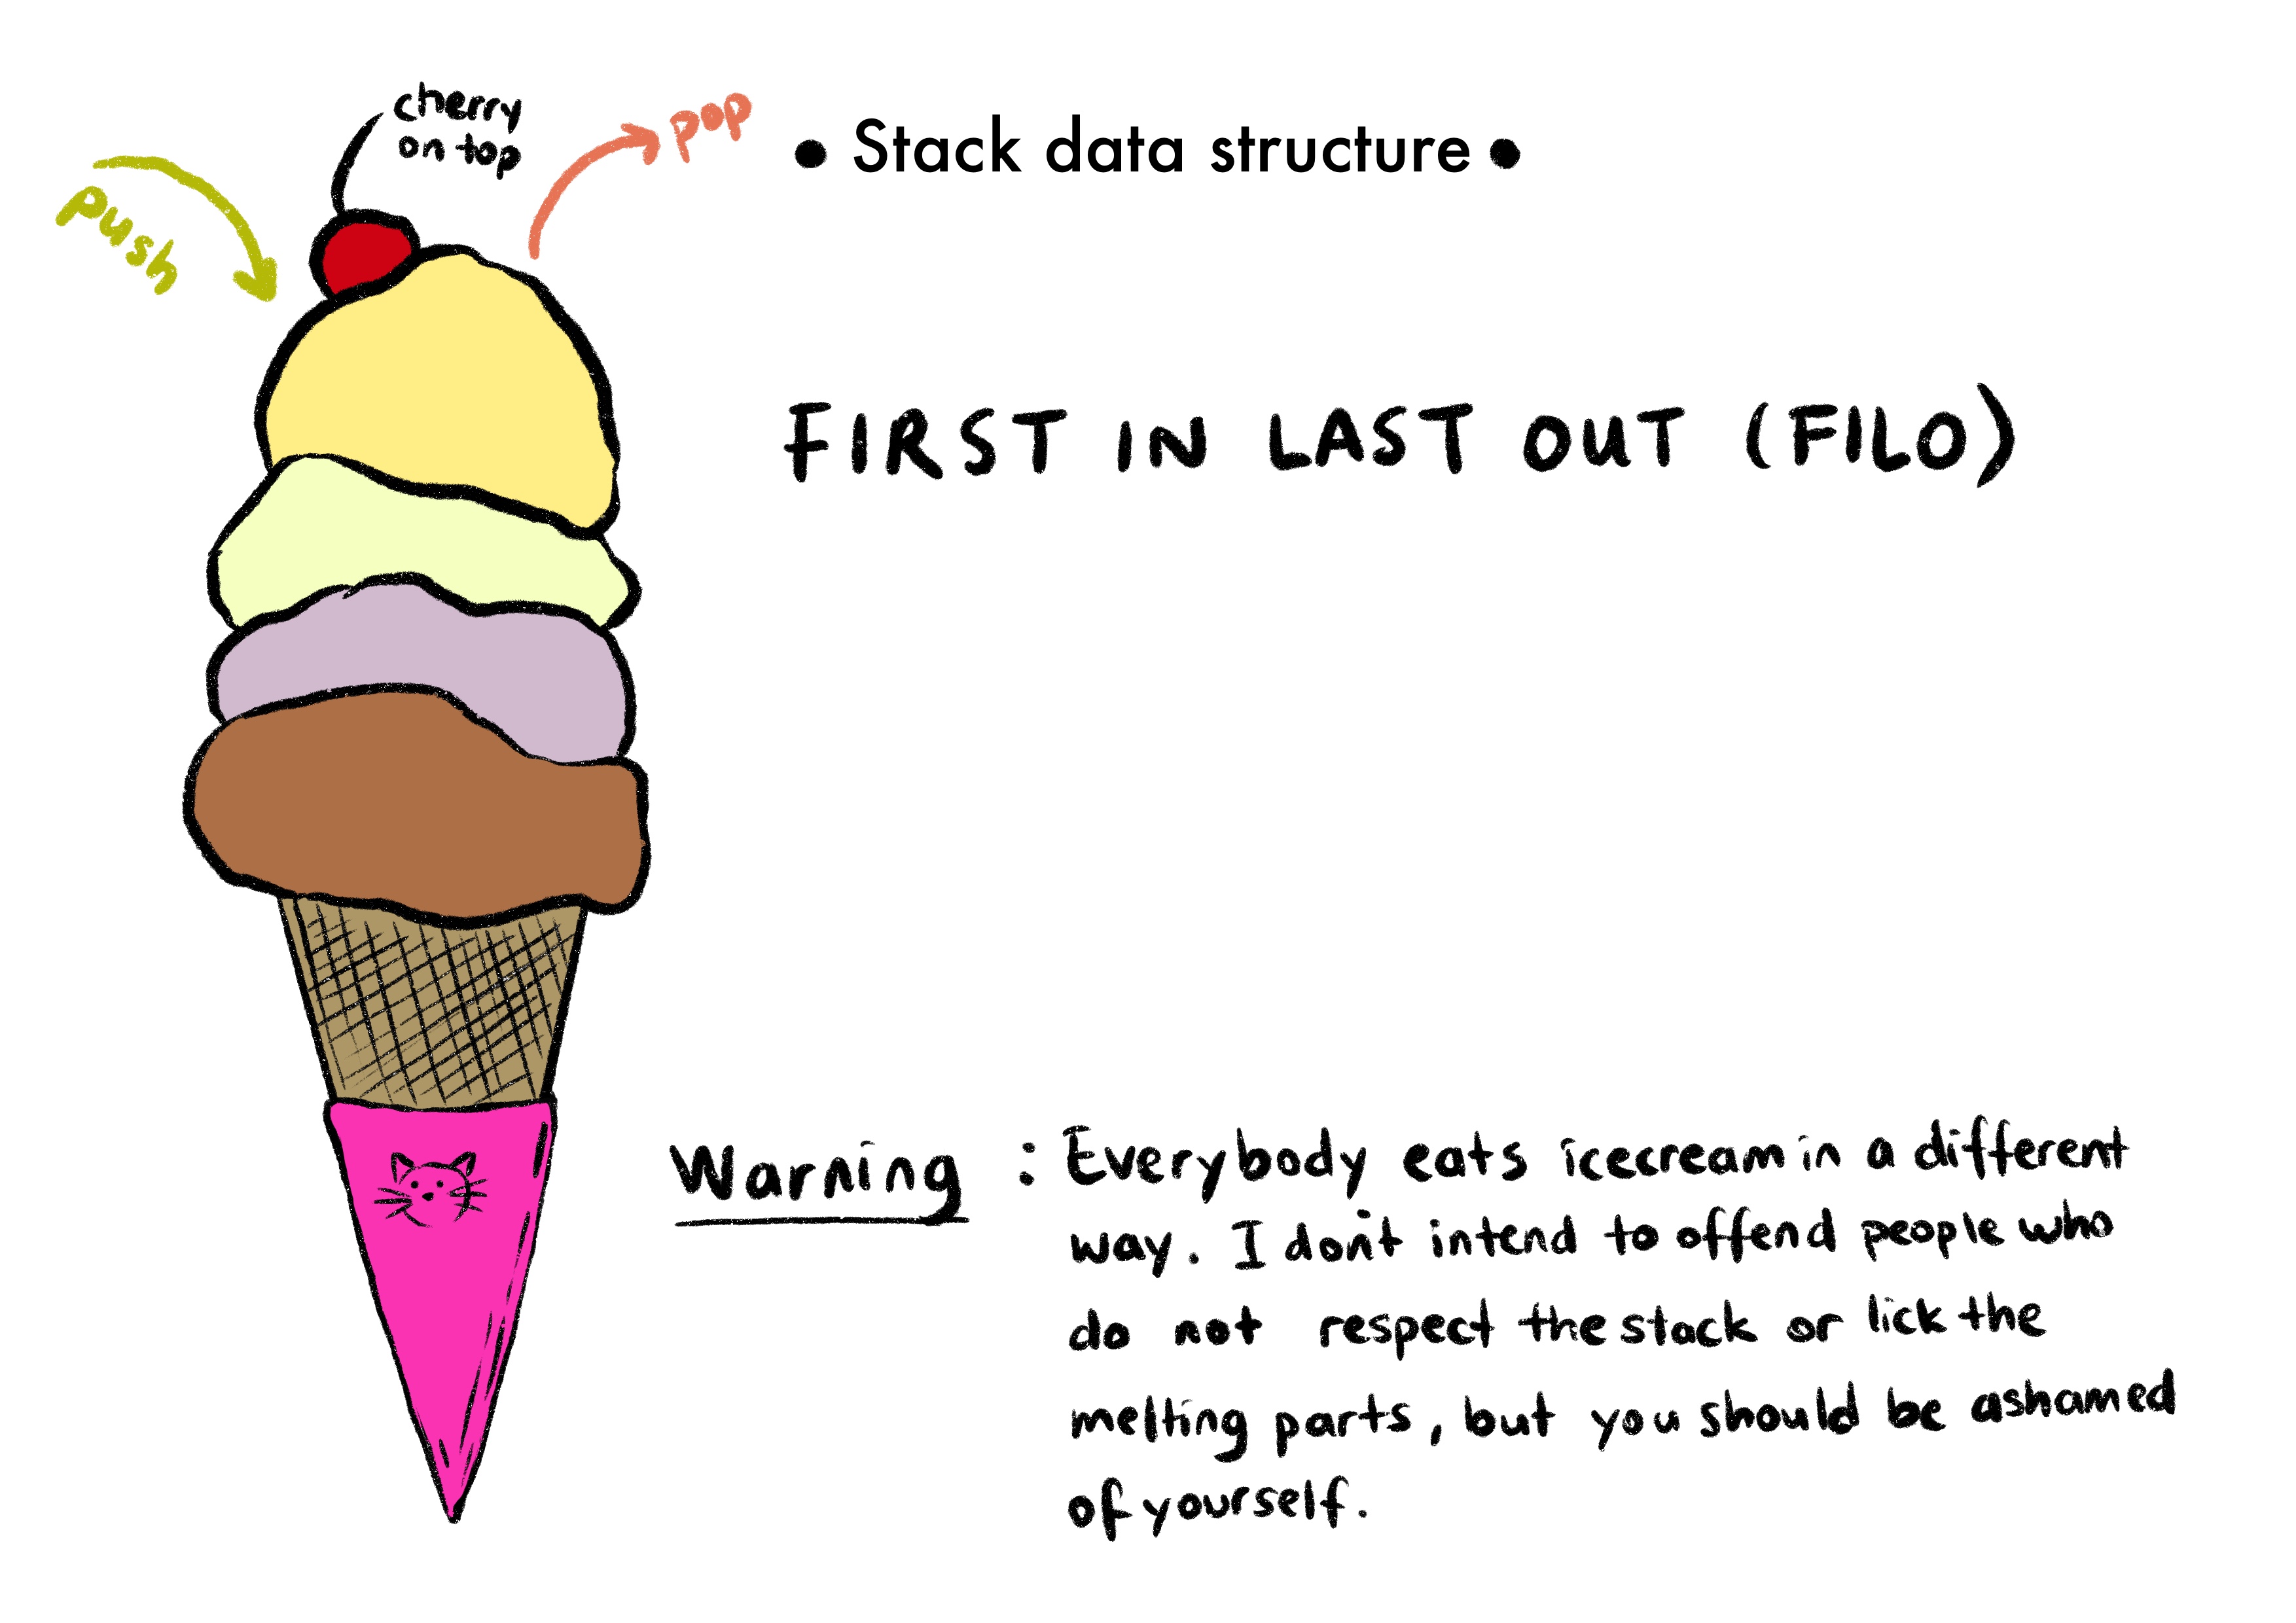 cherry
on top
push
pop
• Stack data structure •
FIRST IN LAST OUT (FILO)
Warning : Everybody eats icecream in a different
way. I don't intend to offend people who
do not respect the stack or lick the
melting parts, but you should be ashamed
of yourself.